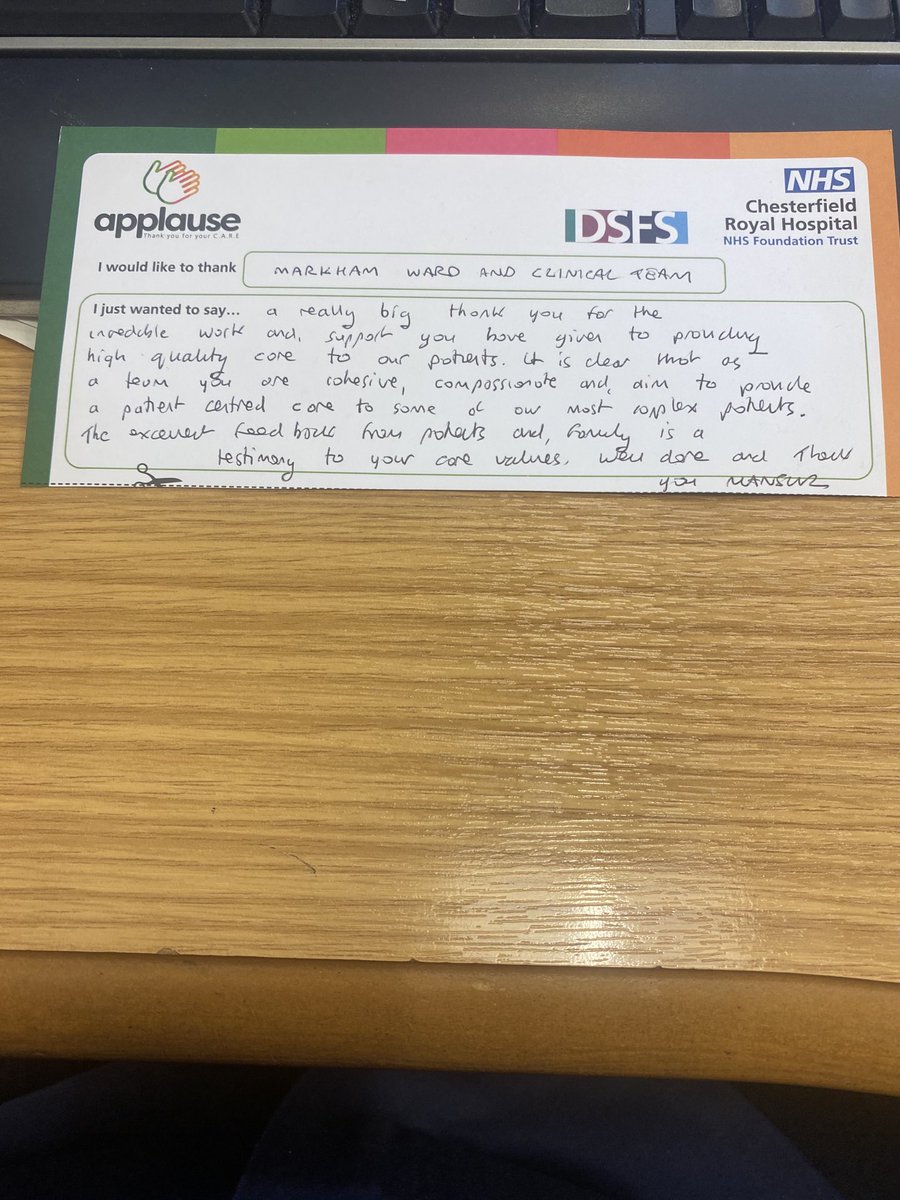 applause
Thank you for your C.A.R.E
DSFS
NHS
Chesterfield
Royal Hospital
NHS Foundation Trust
I would like to thank MARKHAM WARD AND CLINICAL TEAM
I just wanted to say... a really big thank you for the
incredible work and support you have given to providing
high quality care to our patients. It is clear that as
a team you are cohesive, compassionate and aim to provide
a patient centred care to some of our most complex patients.
The excellent feedback from patients and family is a
testimony to your core values. Well done and Thank
you MANSUR